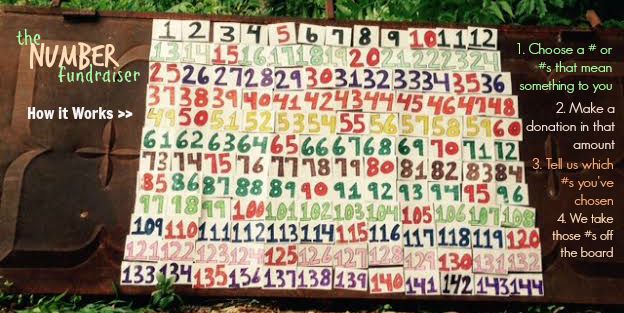 the
NUMBER
fundraiser
How it Works >>
1 2 3 4 5 6 7 8 9 10 11 12
13 14 15 16 17 18 19 20 21 22 23 24
25 26 27 28 29 30 31 32 33 34 35 36
37 38 39 40 41 42 43 44 45 46 47 48
49 50 51 52 53 54 55 56 57 58 59 60
61 62 63 64 65 66 67 68 69 70 71 72
73 74 75 76 77 78 79 80 81 82 83 84
85 86 87 88 89 90 91 92 93 94 95 96
97 98 99 100 101 102 103 104 105 106 107 108
109 110 111 112 113 114 115 116 117 118 119 120
121 122 123 124 125 126 127 128 129 130 131 132
133 134 135 136 137 138 139 140 141 142 143 144
1. Choose a # or
#s that mean
something to you
2. Make a
donation in that
amount
3. Tell us which
#s you've
chosen
4. We take
those #s off
the board